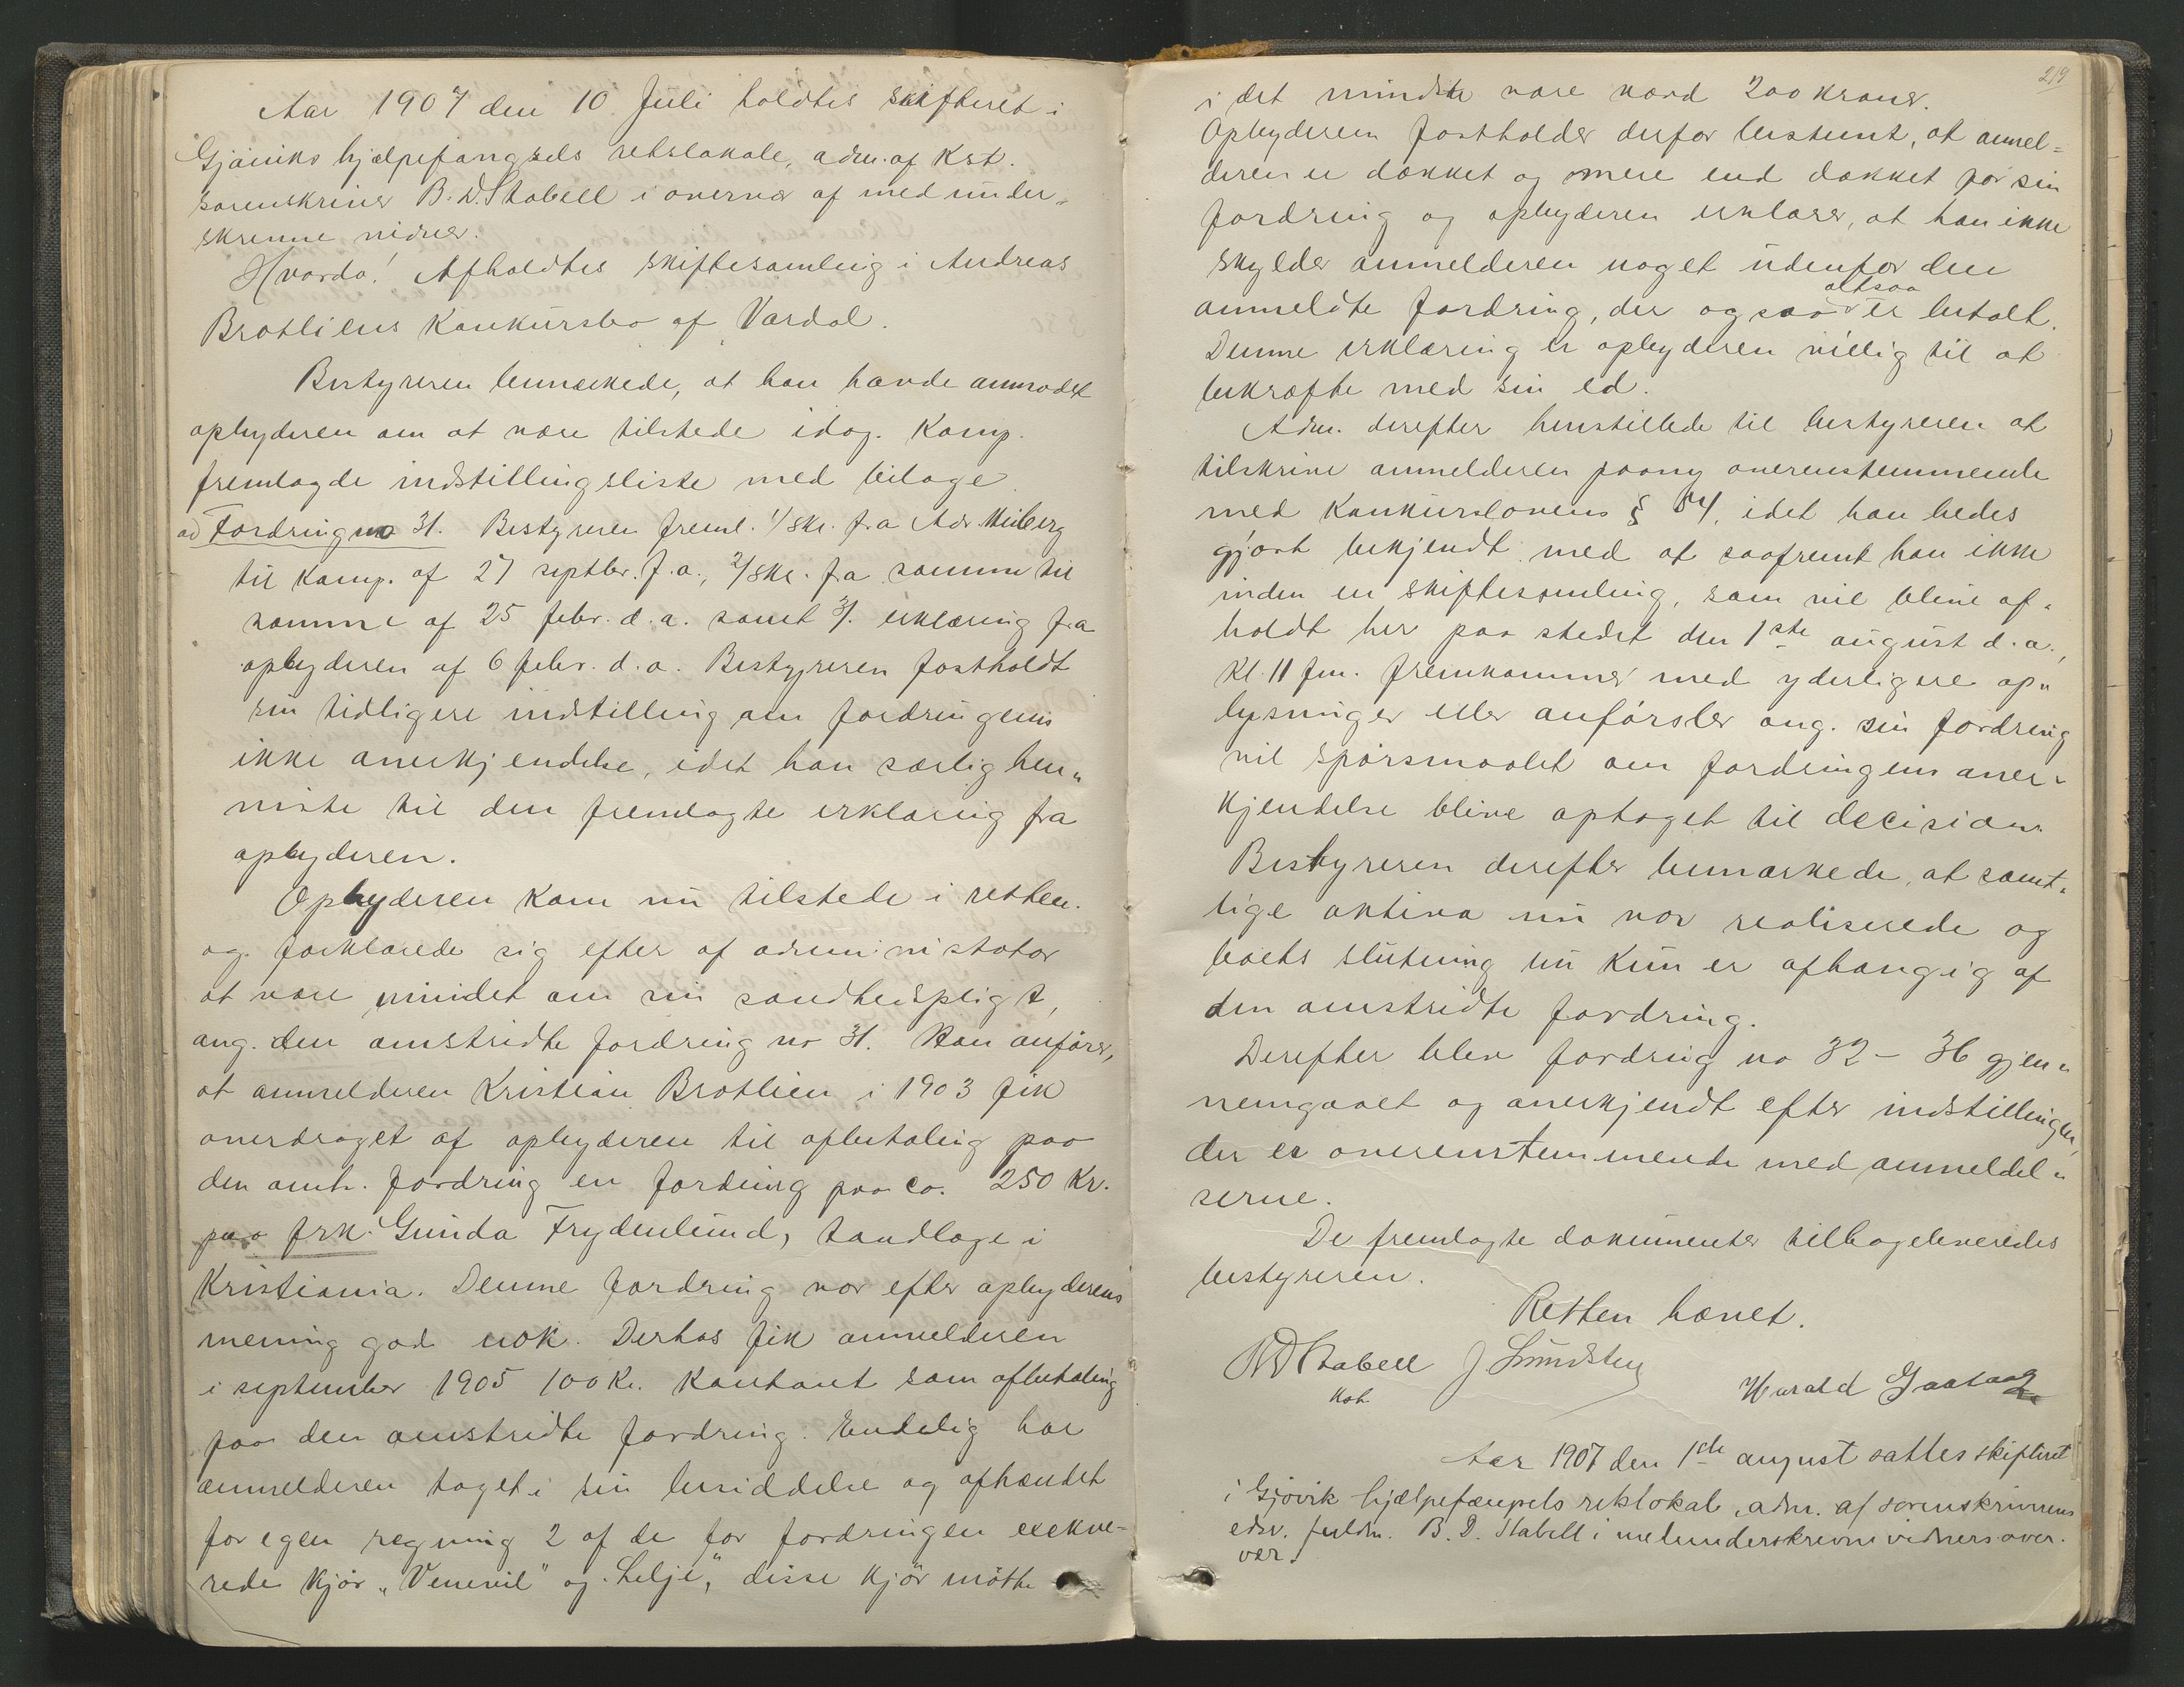 Aar 1907 den 10 Juli holdtes skifteret i
Gjøviks hjælpefængsels retslokale, adm. af Kst.
sorenskriver B. D. Stabell i overvær af medunder-
skrevne vidner.
Hvorda! Afholdtes skiftesamling i Andreas
Brotliens Konkursbo af Vardal.
Bestyreren bemærkede, at han havde anmodet
opbyderen om at være tilstede idag. Komp.
fremlagde indstillingsliste med bilage
ad Fordring no 31. Bestyreren freml. 1/ skr. fra Adv.
til Komp. af 27 septbr. f.a., 2/ skr. fra samme til
samme af 25 febr. d.a. samt 3/. erklæring fra
opbyderen af 6 febr. d.a. Bestyreren fastholdt
sin tidligere indstilling om fordringens
ikke anerkjendelse, idet han særlig hen-
viste til den fremlagte erklæring fra
opbyderen.
Opbyderen kom nu tilstede i retten.
og forklarede sig efter af administrator
at være mindet om sin sandhedspligt,
ang. den omstridte fordring no 31. Han anfører,
at anmelderen Kristian Brotlien i 1903 fik
overdraget af opbyderen til afbetaling paa
den omh. fordring en fordring paa ca. 250 Kr.
paa frk. Gunda Frydenlund, tandlæge i
Kristiania. Denne fordring var efter opbyderens
mening god nok. Derhos fik anmelderen
i september 1905 100 Kr. Kontant som afbetaling
paa den omstridte fordring. Endelig har
anmelderen taget i sin besiddelse og afhændet
for egen regning 2 af de for fordringen exekve-
rede kjør "Venevil" og "Lilje", disse kjør måtte
219
i det mindste være værd 200 kroner.
Opbyderen fastholder derfor bestemt, at anmel-
deren er dækket og mere end dækket for sin
fordring og opbyderen erklærer, at han ikke
skylder anmelderen noget udenfor den
altsaa
anmeldte fordring, der ogsaa er betalt.
Denne erklæring er opbyderen villig til at
bekræfte med sin ed.
Adm. derefter henstillede til bestyreren at
tilskrive anmelderen paany overenstemmende
med Konkurslovens § 84, idet han bedes
gjort bekjendt med at saafremt han ikke
inden en skiftesamling, som vil blive af-
holdt her paa stedet den 1ste august d.a.,
Kl. 11 fm. fremkommer med yderligere op-
lysninger eller anførsler ang. sin fordring
vil spørsmaalet om fordringens aner-
kjendelse blive optaget til decision.
Bestyreren derefter bemærkede, at samt-
lige aktiva nu var realiserede og
boets slutning nu kun er afhængig af
den omstridte fordring.
Derefter blev fordring no 32 - 36 gjen-
nemgaaet og anerkjendt efter indstillingen,
der er overenstemmende med anmeldel-
serne.
De fremlagte dokumenter tilbageleveredes
bestyreren.
Retten hævet.
B D Stabell J. Lundsten
Kst. Harald
Aar 1907 den 1ste august sattes skifteret
i Gjøvik hjælpefængsels retslokale, adm. af sorenskriverens
edsv. fuldm. B. D. Stabell i medunderskrevne vidners over-
vær.